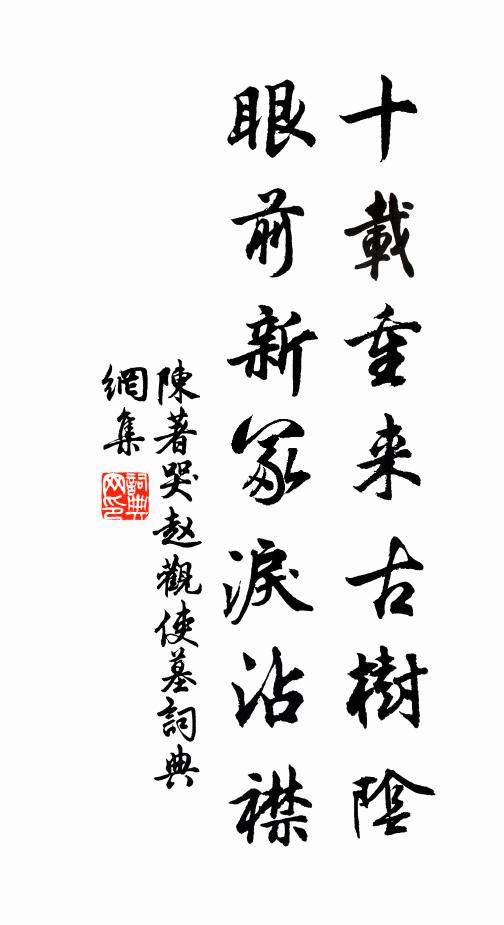 十載重来古樹陰
眼前新冢淚沾襟
陳著哭赵觀使墓詞典
網集
詞典
网印